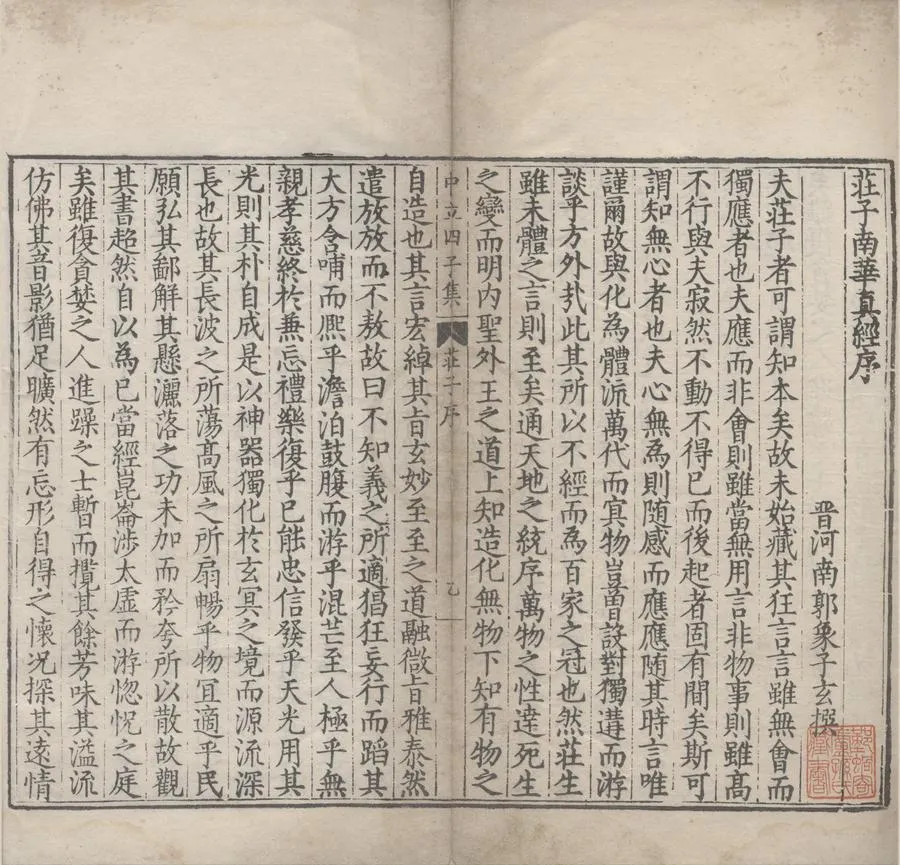 莊子南華真經序
晋河南郭象子玄撰
夫莊子者可謂知本矣故未始藏其狂言言雖無會而
獨應者也夫應而非會則雖當無用言非物事則雖髙
不行與夫寂然不動不得已而後起者固有間矣斯可
謂知無心者也夫心無為則随感而應應随其時言唯
謹爾故與化為體流萬代而㝠物豈曾設對獨遘而游
談乎方外㢤此其所以不經而為百家之冠也然莊生
雖未體之言則至矣通天地之統序萬物之性達死生
之變而明内聖外王之道上知造化無物下知有物之
中立四子集
莊子序
乙
自造也其言宏綽其旨玄妙至至之道融微旨雅泰然
遣放放而不敖故曰不知義之所適猖狂妄行而蹈其
大方含哺而熈乎澹泊鼓腹而游乎混芒至人極乎無
親孝慈終於兼忘禮樂復乎已能忠信發乎天光用其
光則其朴自成是以神器獨化於玄冥之境而源流深
長也故其長波之所蕩髙風之所扇暢乎物宜適乎民
願弘其鄙解其懸灑落之功未加而矜夸所以散故觀
其書超然自以為已當經崑崙涉太虛而游惚怳之庭
矣雖復貪婪之人進躁之士暫而攬其餘芳味其溢流
仿佛其音影猶足曠然有忘形自得之懷况探其遠情